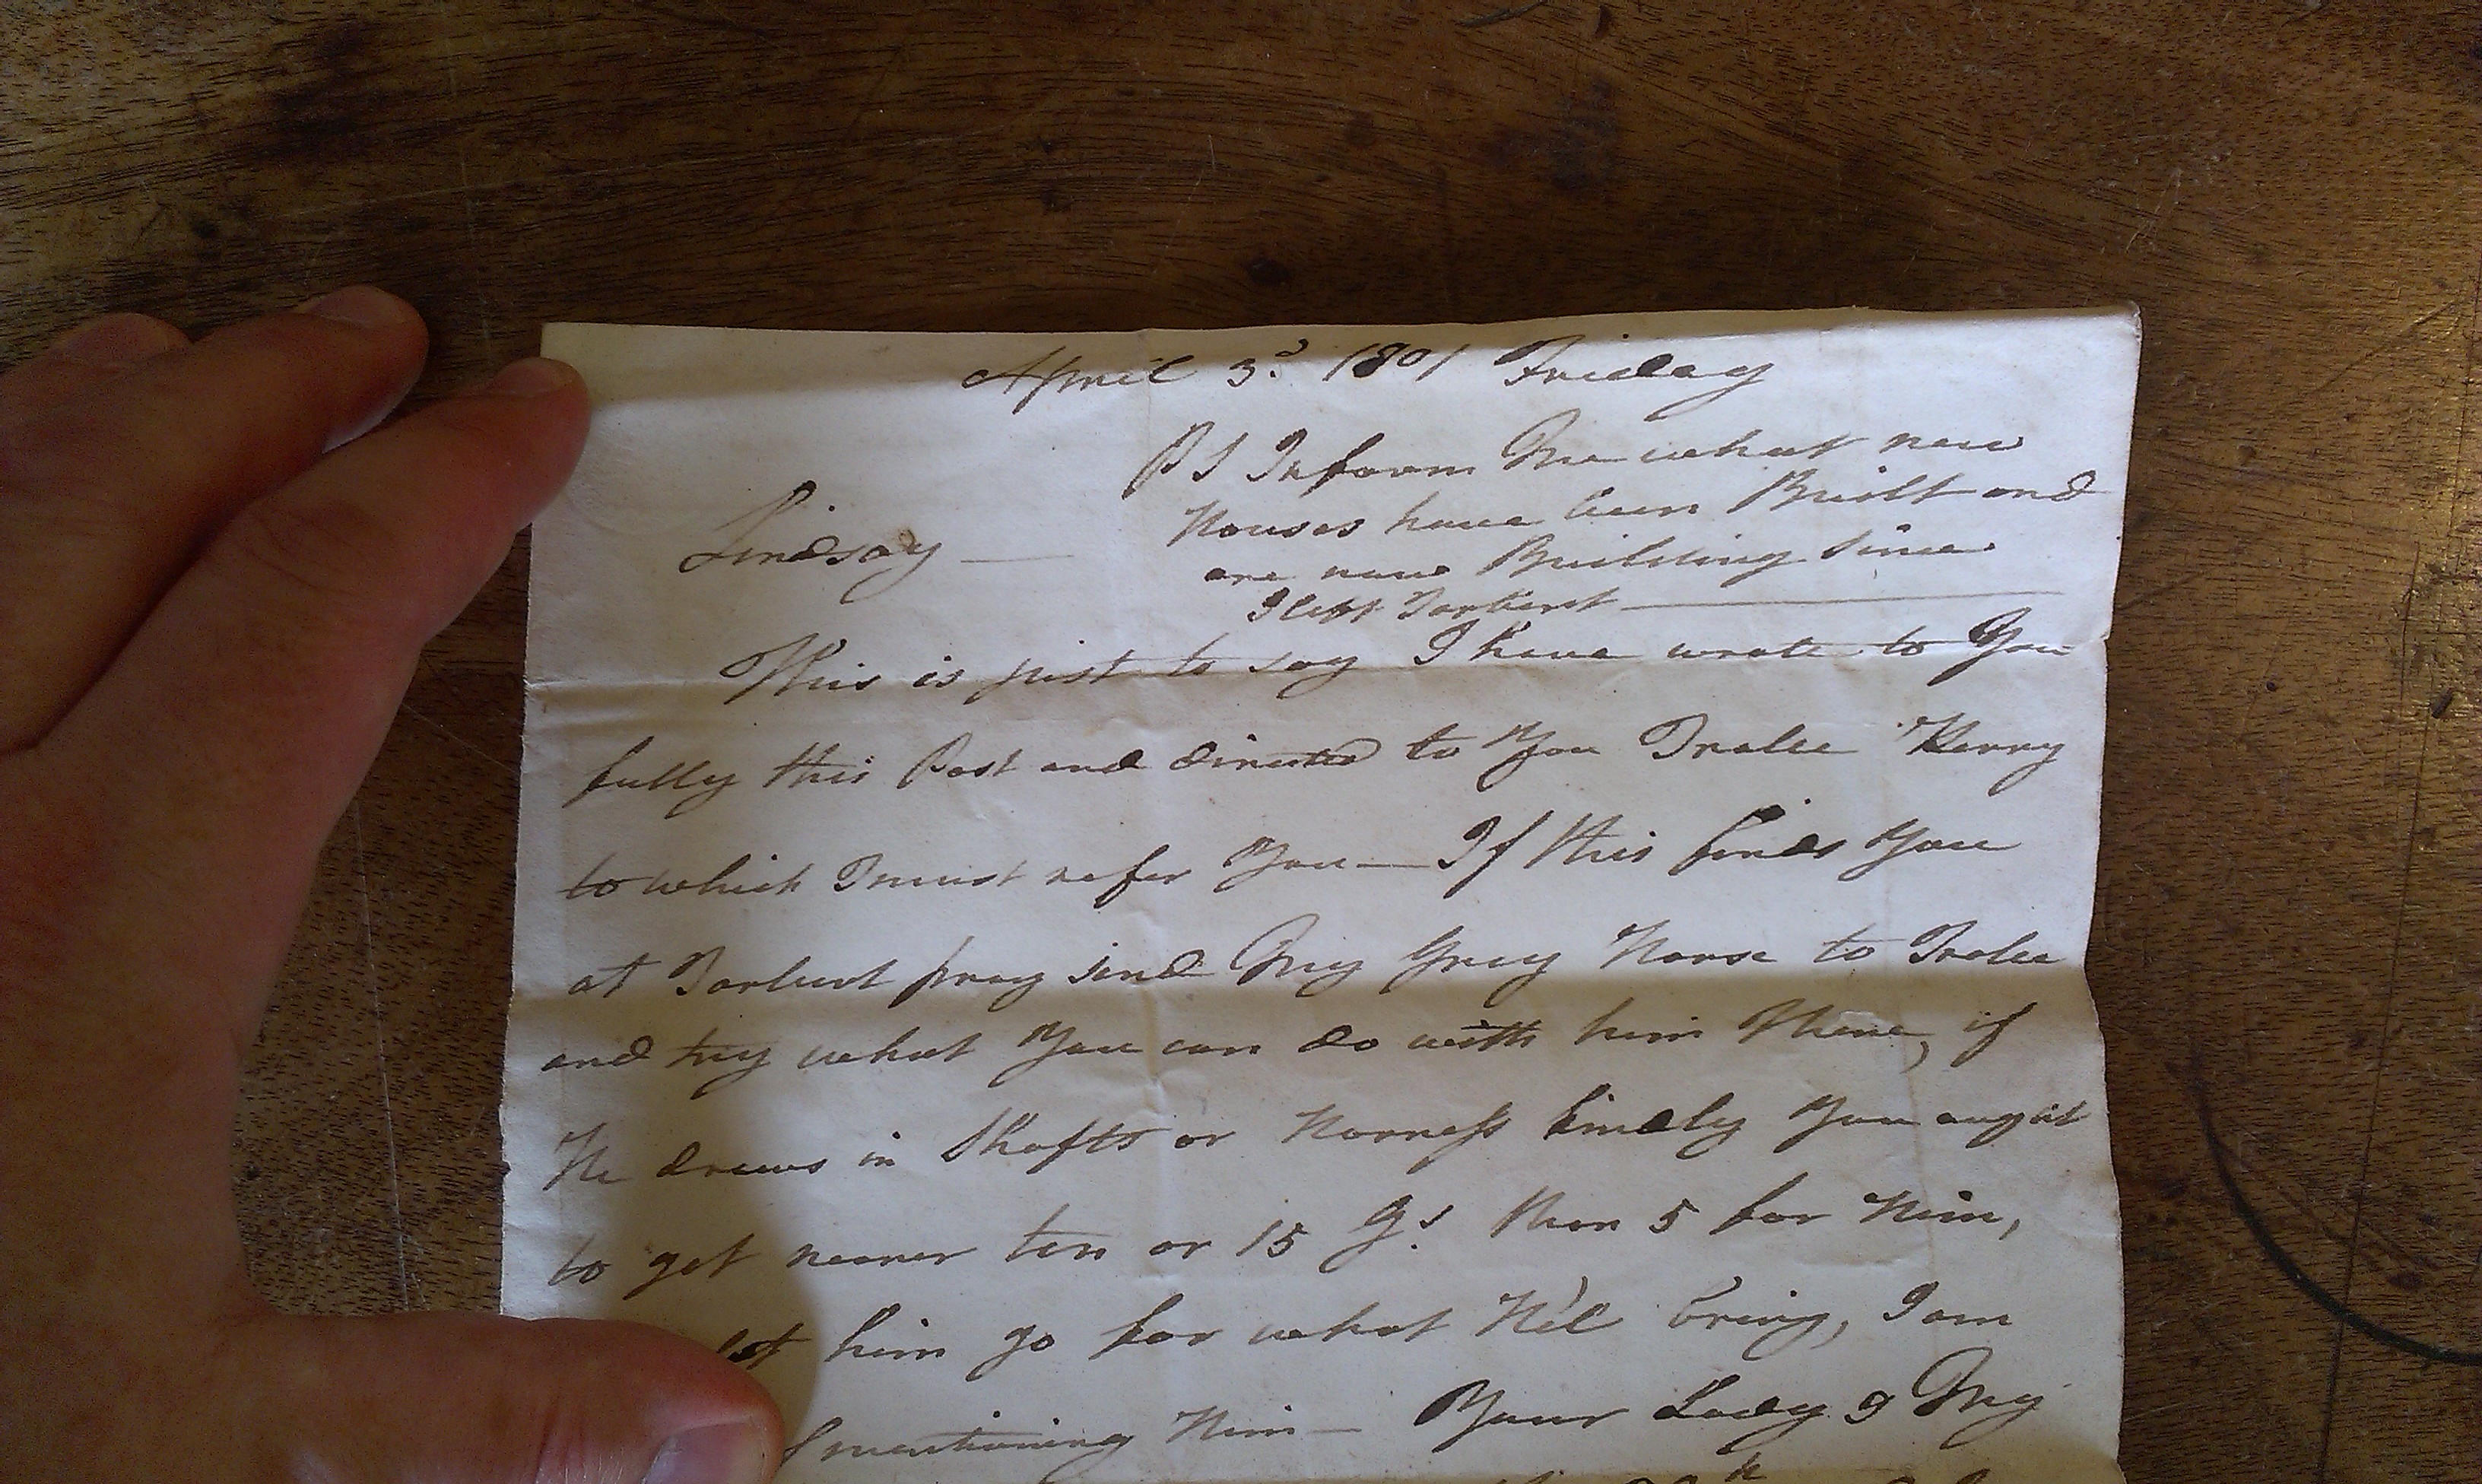 April 3d. 1801 Friday
PS Inform Me what new
Houses have been Built and
are now Building since
I left Tarbert
Lindsay —
This is just to say I have wrote to You
fully this Post and directed to You Tralee Kerry
to which I must refer You — If this finds You
at Tarbert pray send My Grey Horse to Tralee
and try what You can do with him There, if
He draws in Shafts or Harness kindly You ought
to get nearer ten or 15 Gs. than 5 for Him,
let him go for what He'l bring, I am
mentioning Him — Your Lady & My